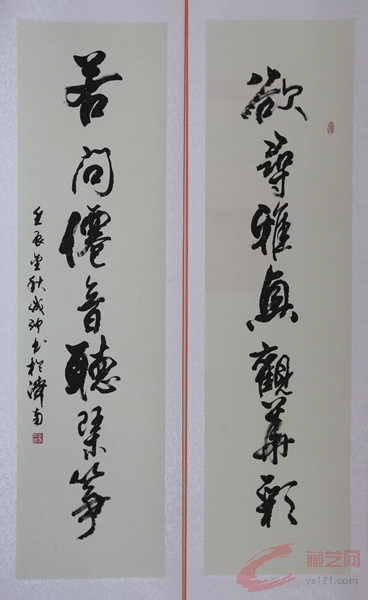 欲尋雅真觀華彩
若問僊音聽琴箏
壬辰金秋成沖書於濟南
藏艺网
ys121.com